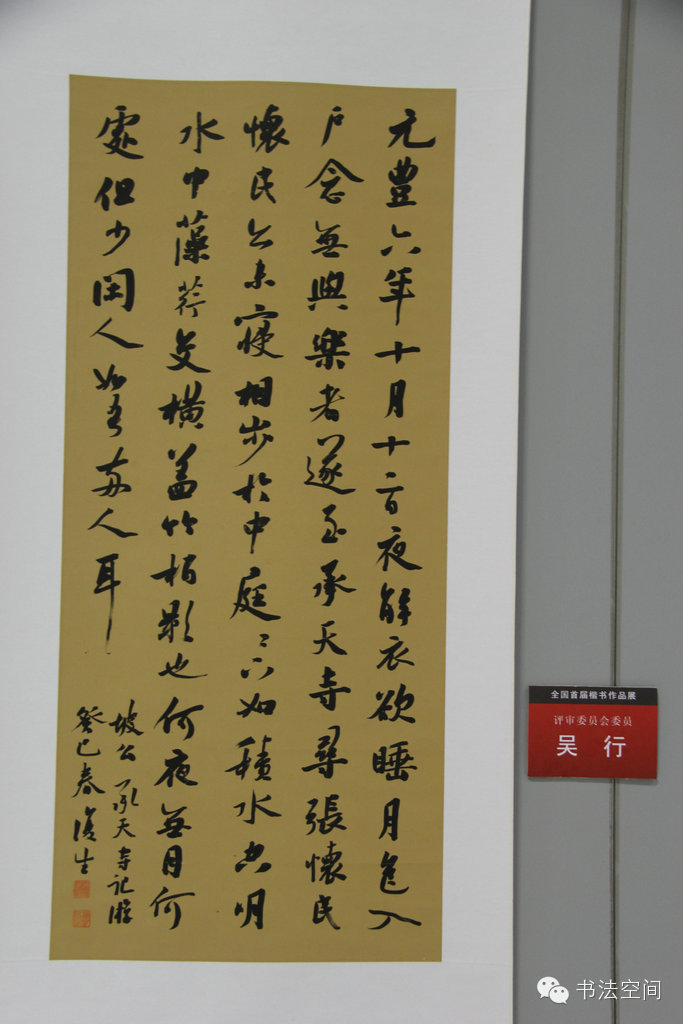 元豐六年十月十二日夜解衣欲睡月色入
戶念無與樂者遂至承天寺尋張懷民
懷民亦未寢相步於中庭〻下如積水空明
水中藻荇交橫蓋竹柏影也何夜無月何
處但少閑人如吾兩人耳
坡公承天寺記游
癸巳春復生
全国首届楷书作品展
评审委员会委员
吴行
书法空间